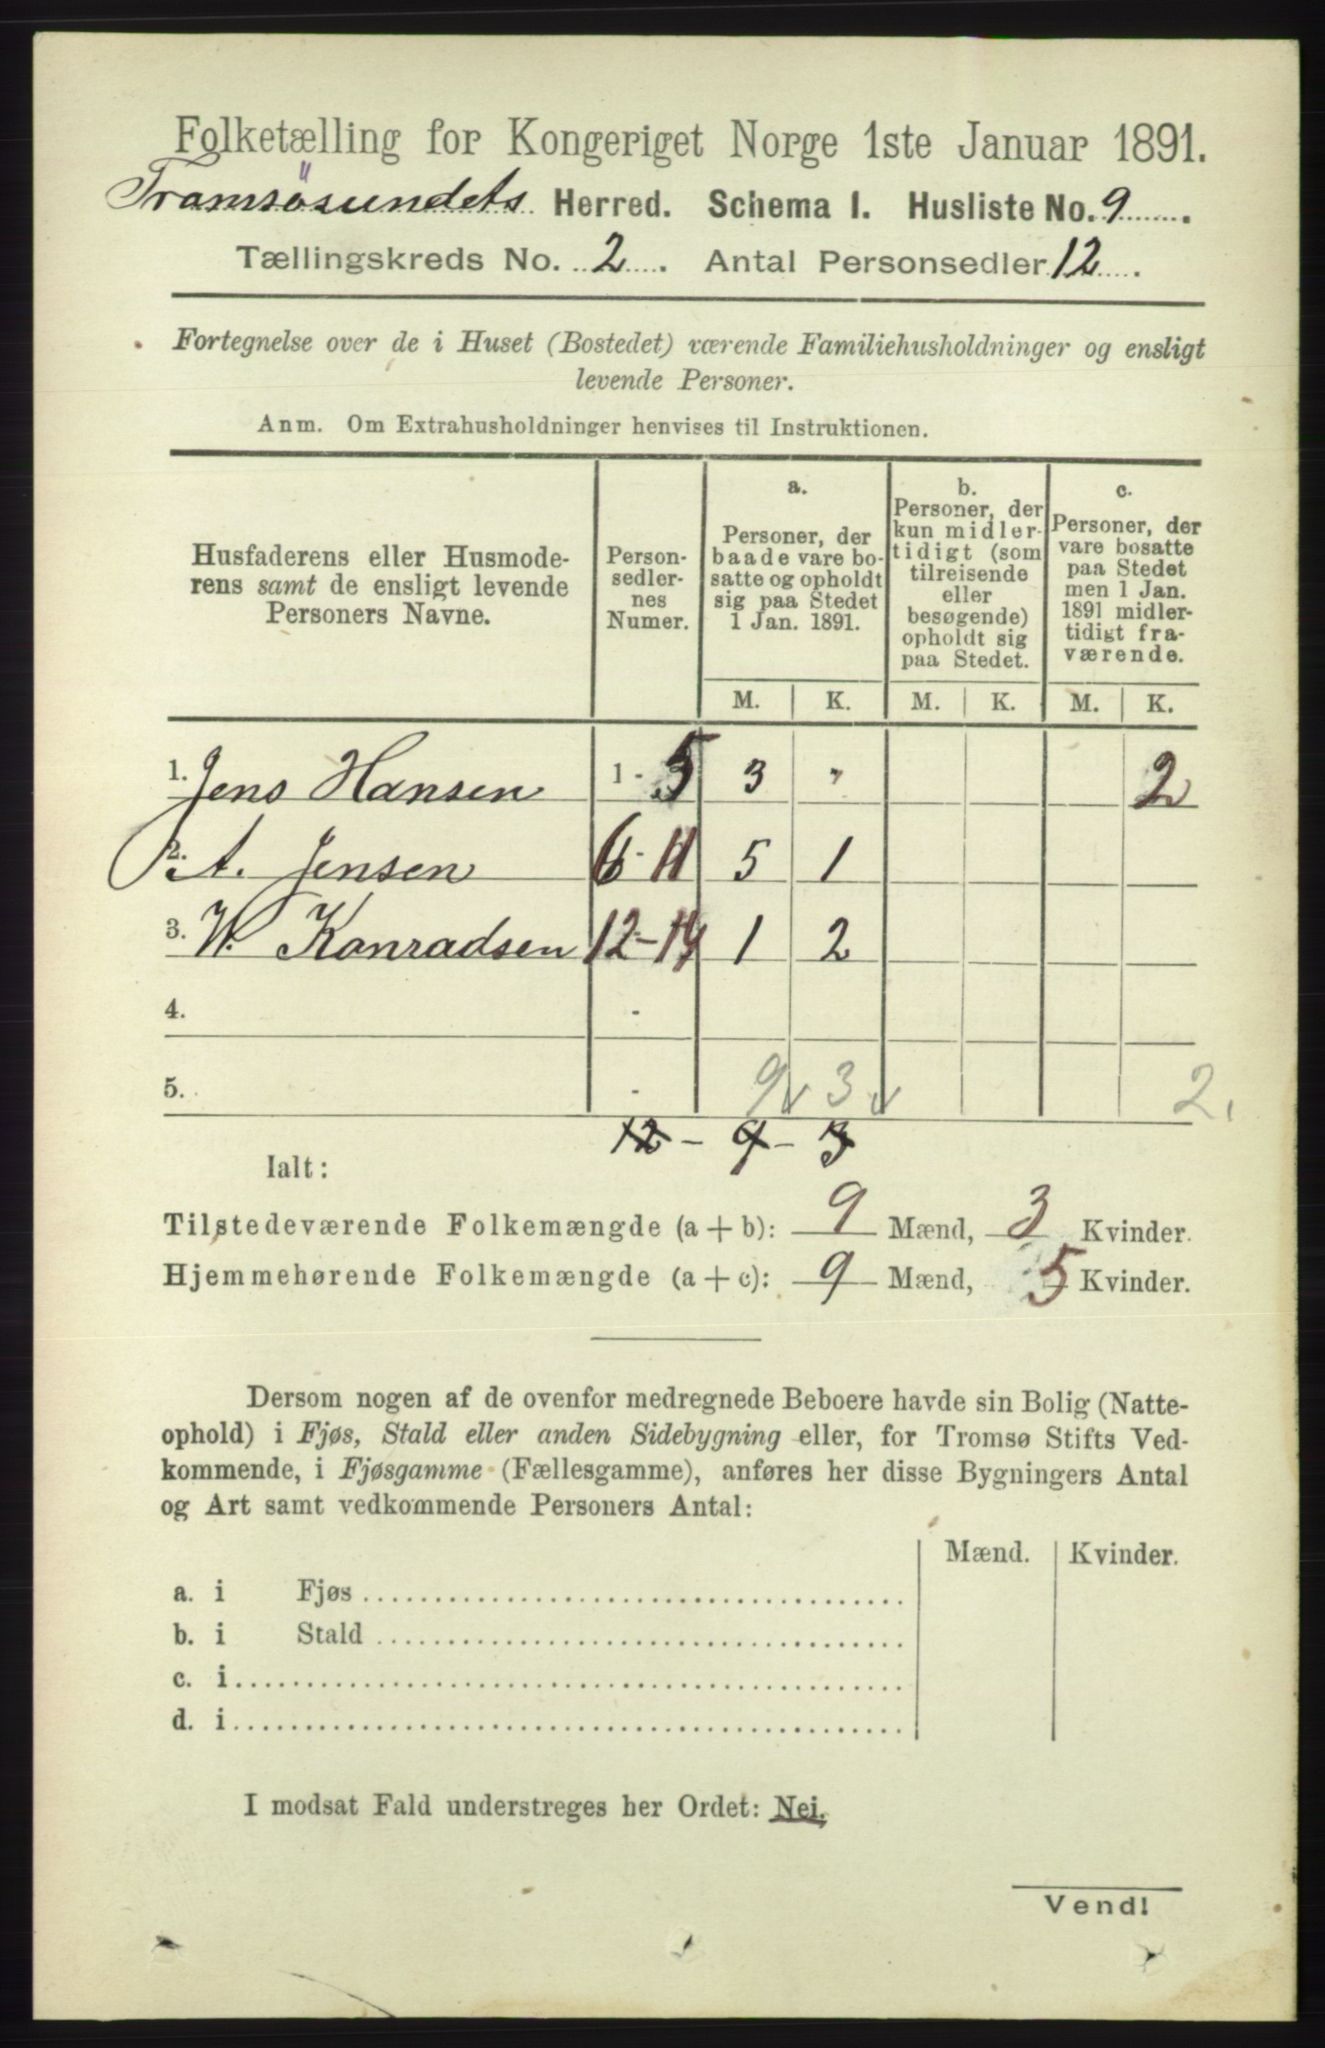 Folketælling for Kongeriget Norge 1ste Januar 1891.
Tromsøsundets Herred. Schema I. Husliste No. 9
Tællingskreds No. 2. Antal Personsedler 12.
Fortegnelse over de i Huset (Bostedet) værende Familiehusholdninger og ensligt
levende Personer.
Anm. Om Extrahusholdninger henvises til Instruktionen.
Husfaderens eller Husmode-
rens samt de ensligt levende
Personers Navne.
Person-
sedler-
nes
Numer.
a.
Personer, der
baade vare bo-
satte og opholdt
sig paa Stedet
1 Jan. 1891.
b.
Personer, der
kun midler-
tidigt (som
tilreisende
eller
besøgende)
opholdt sig
paa Stedet.
c.
Personer, der
vare bosatte
paa Stedet
men 1 Jan.
1891 midler-
tidigt fra-
værende.
M. K. M. K. M. K.
1. Jens Hansen 1 - 5 3 " 2
2. A. Jensen 6 - 11 5 1
3. W. Konradsen 12 - 14 1 2
4. -
5. - 9 3 2.
12 - 9 - 3
Ialt:
Tilstedeværende Folkemængde (a + b): 9 Mænd, 3 Kvinder.
Hjemmehørende Folkemængde (a + c): 9 Mænd, 5 Kvinder.
Dersom nogen af de ovenfor medregnede Beboere havde sin Bolig (Natte-
ophold) i Fjøs, Stald eller anden Sidebygning eller, for Tromsø Stifts Ved-
kommende, i Fjøsgamme (Fællesgamme), anføres her disse Bygningers Antal
og Art samt vedkommende Personers Antal:
Mænd. Kvinder.
a. i Fjøs
b. i Stald
c. i
d. i
I modsat Fald understreges her Ordet: Nei.
Vend!